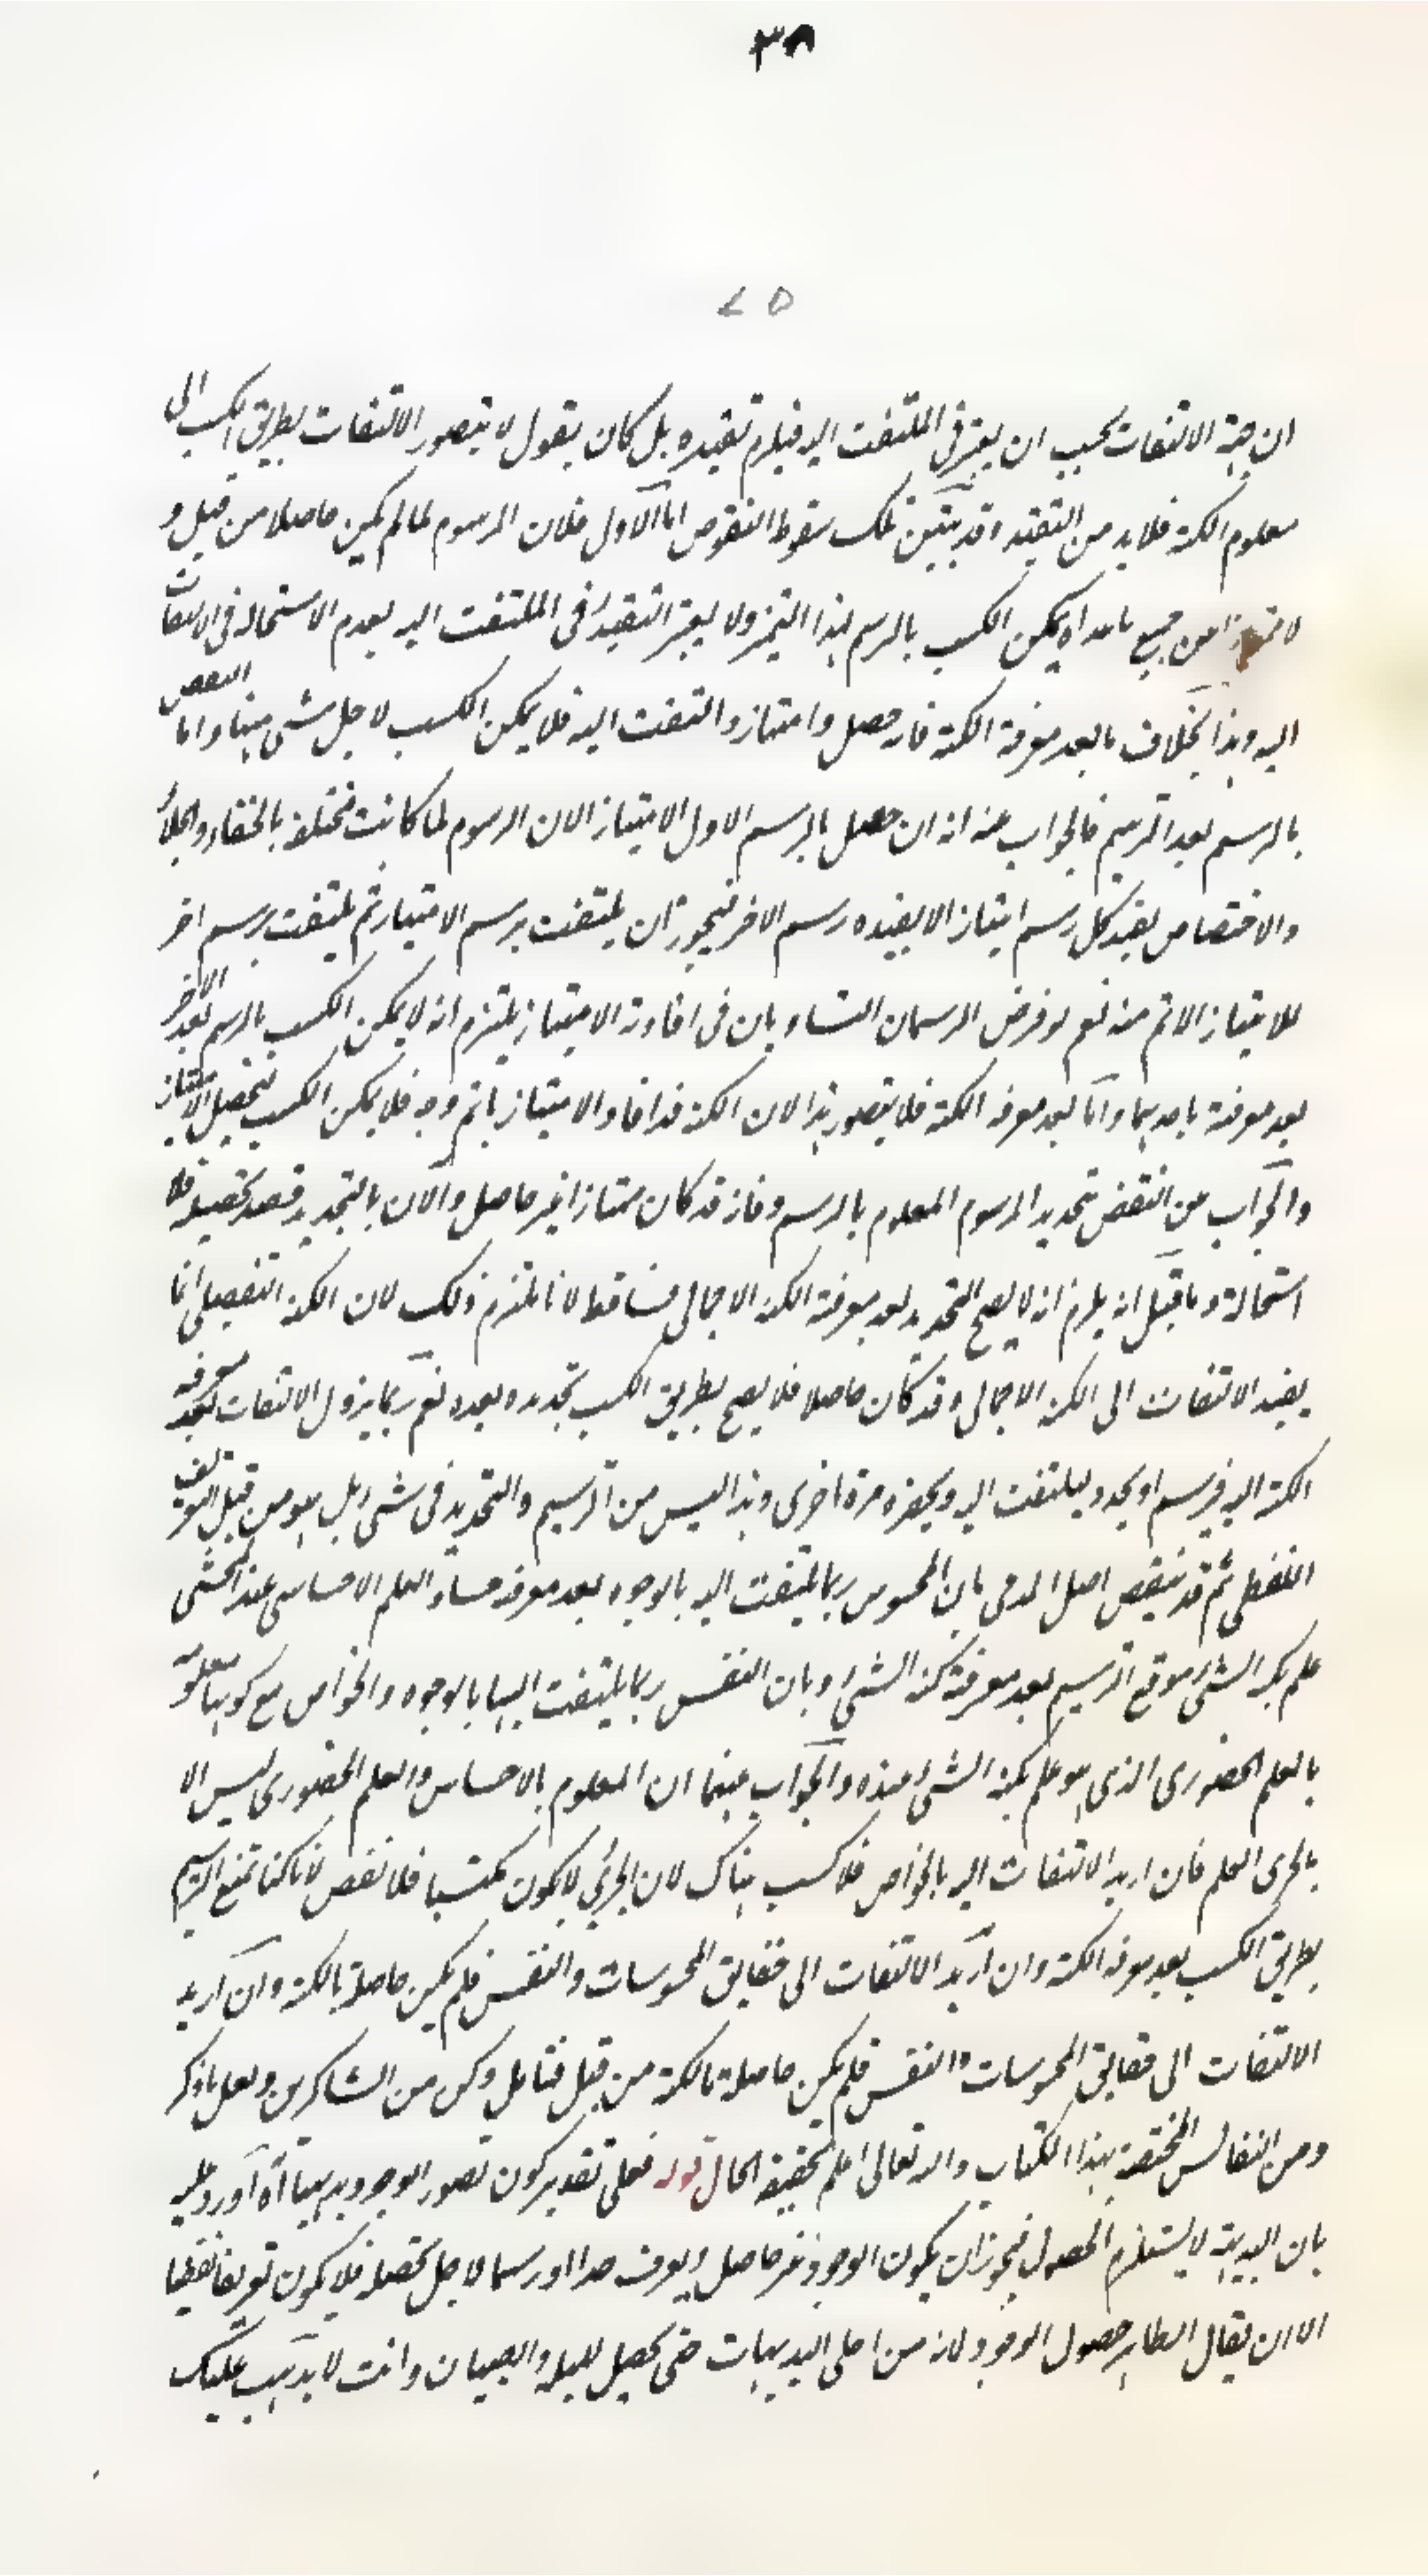 ٣٨
٢٥
ان جهة الالتفات يجب ان يعتبر فى الملتفت اليه فيلزم تقييده بل كان يقول لا يتصور الالتفات بطريق الكسب الى
معلوم الكنه فلا بد من التقييد وقد يتبين لك سقوط النقوض اما الاول فلان المرسوم لما لم يكن حاصلا من قبل و
لا من جميع ما عداه يمكن الكسب بالرسم لهذا التميز ولا يعتبر التقييد فى الملتفت اليه لعدم الاستحالة فى الالتفات
اليه وهذا بخلاف ما بعد معرفة الكنه فانه حصل وامتاز والتفت اليه فلا يمكن الكسب لاجل شى منها واما النقض
بالرسم بعد الترسيم فالجواب عنه انه ان حصل بالرسم الاول الامتياز الا ان الرسوم لما كانت مختلفة بالخفاء والجلاء
والاختصاص يفيد كل رسم امتيازا لا يفيده رسم الاخر فيجوز ان يلتفت برسم الامتياز ثم يلتفت برسم اخر
للامتياز الاتم منه نعم لو فرض الرسمان المتساويان فى افادة الامتياز يلتزم انه لا يمكن الكسب بالرسم الاخر
بعد معرفته باحدهما واما بعد معرفة الكنه فلا يتصور هذا لان الكنه قد افاد الامتياز باتم وجه فلا يمكن الكسب لتحصيل الامتياز
والجواب عن النقض بتحديد المرسوم المعلوم بالرسم فانه قد كان ممتازا غير حاصل والآن بالتحديد قصد تحصيله فلا
استحالة وما قيل انه يلزم ان لا يصح التحديد بعد معرفة الكنه الاجمالى فساقط لانا نلتزم ذلك لان الكنه التفصيلى انما
يفيد الالتفات الى الكنه الاجمالى وقد كان حاصلا فلا يصح بطريق الكسب تجدده بعده نعم ربما يزول الالتفات بعد معرفة
الكنه اليه فيرسم او يحد ليلتفت اليه ويحضره مرة اخرى وهذا ليس من الترسيم والتحديد فى شى بل هو من قبل التعريف
اللفظى ثم قد ينقض اصل المدعى بان المحسوس ربما يلتفت اليه بالوجوه بعد معرفة حسا والعلم الاحساسى عند المحشى
علم بكنه الشئ فوقع الترسيم بعد معرفة كنه الشئ وبان النفس ربما يلتفت اليها بالوجوه والخواص مع كونها معلومة
بالعلم الحضورى الذى هو علم بكنه الشئ عنده والجواب عنهما ان المعلوم بالاحساس والعلم الحضورى ليس الا
بالجزئى العلم فان اريد الالتفات اليه بالخواص فلا كسب هناك لان الجزئى لا يكون مكتسبا فلا نقض لانا كنا نمنع الترسيم
بطريق الكسب بعد معرفة الكنه وان اريد الالتفات الى حقايق المحسوسات والنفس فلم يكن حاصلة بالكنه وان اريد
الالتفات الى حقايق المحسوسات والنفس فلم يكن حاصلة بالكنه من قبل فتامل وكن من الشاكرين ولعل ما ذكر
ومن النفائس المختصة بهذا الكتاب والله تعالى اعلم بحقيقة الحال قوله فعلى تقدير كون تصور الوجود بديهيا آه اورد عليه
بان البديهة لا يستلزم الحصول فيجوز ان يكون الوجود غير حاصل ويعرف حدا او رسما لاجل تحصيله فلا يكون تعريفا لفظيا
الا ان يقال الظاهر حصول الوجود لانه من اجلى البديهيات حتى يحصل للبله والصبيان وانت لا يذهب عليك